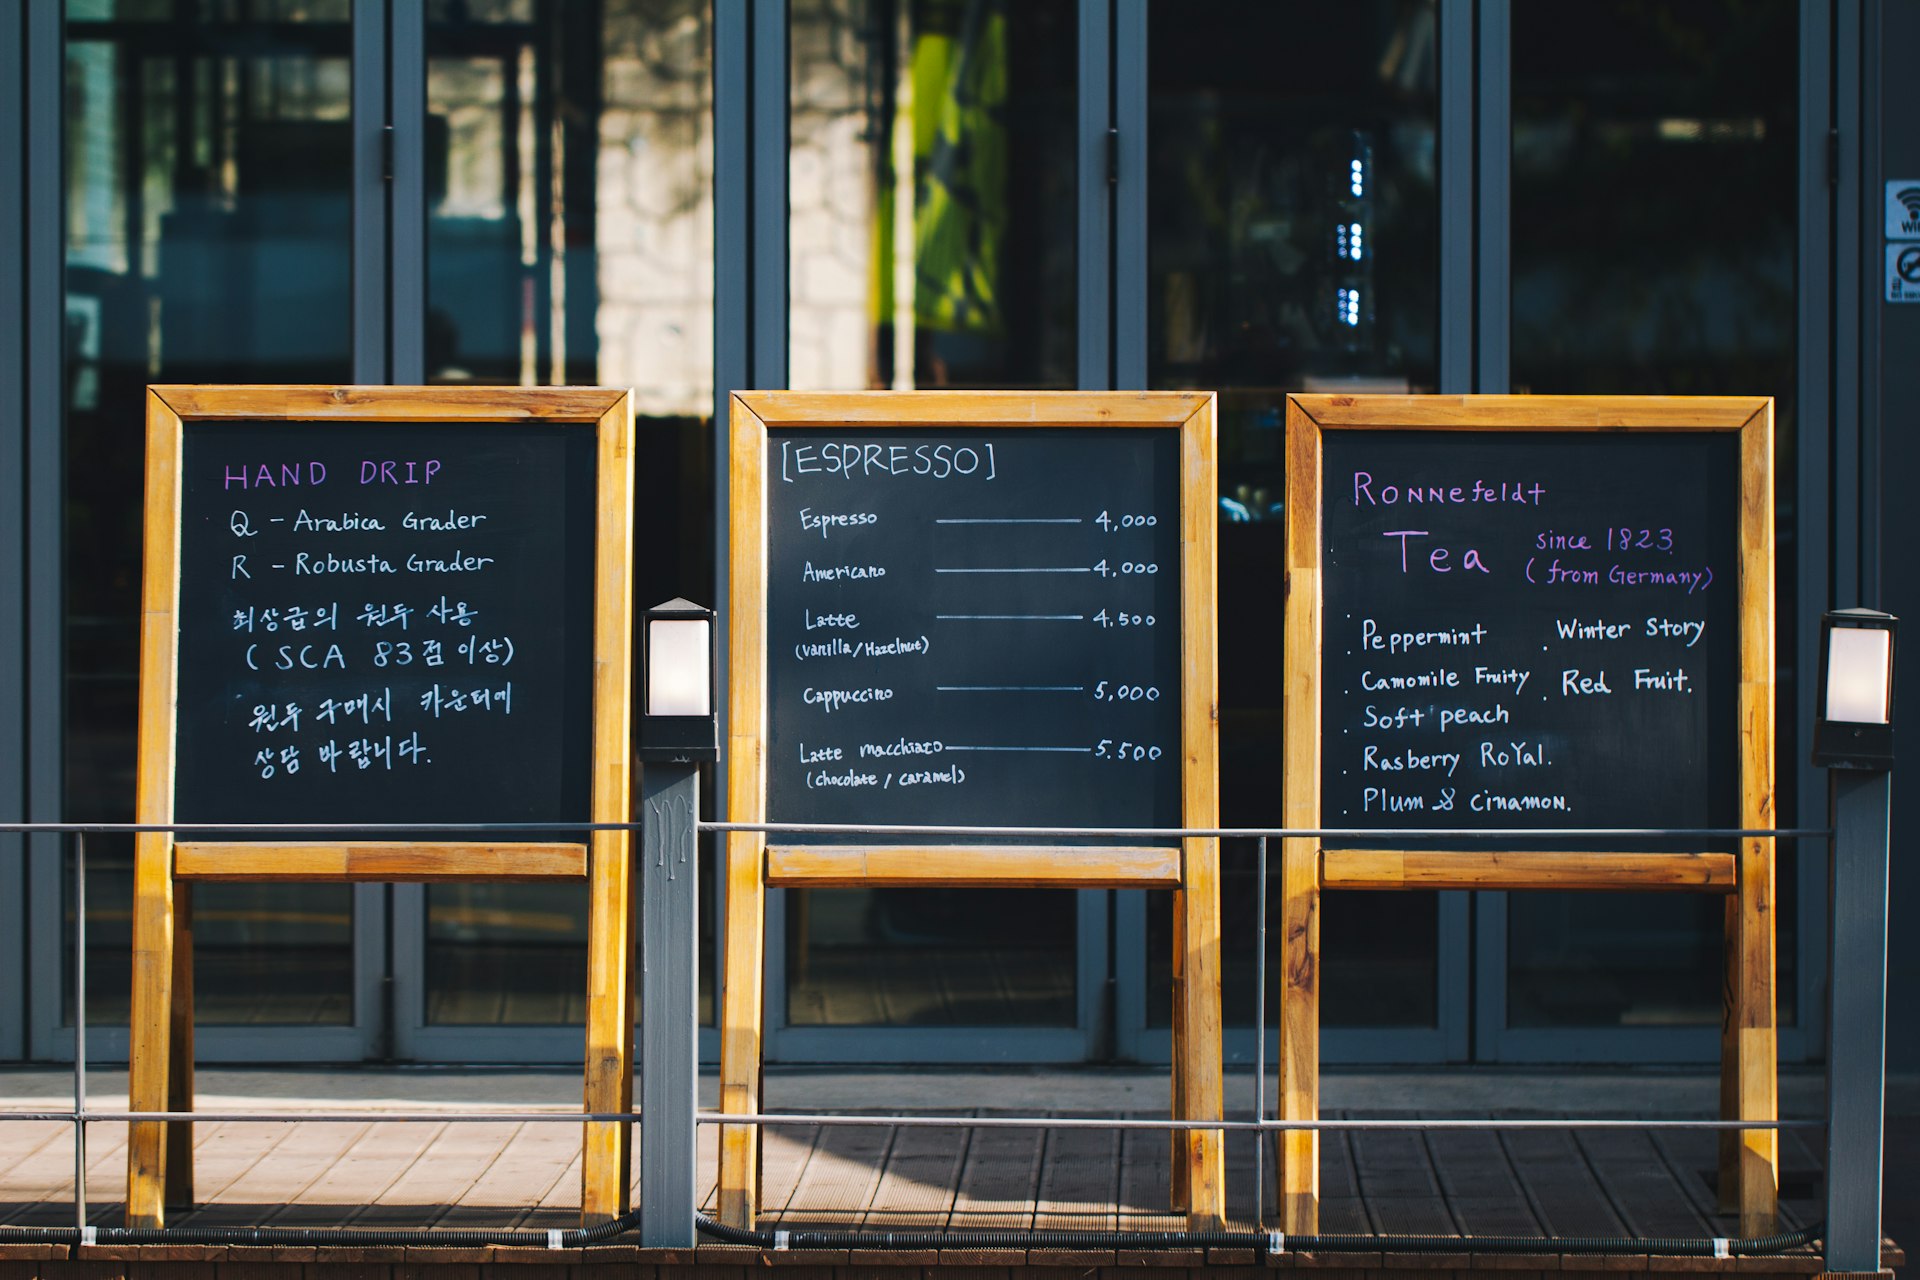 HAND DRIP
Q - Arabica Grader
R - Robusta Grader
최상급의 원두 사용
( SCA 83점 이상)
원두 구매시 카운터에
상담 바랍니다.
[ESPRESSO]
Espresso 4,000
Americano 4,000
Latte 4,500
(vanilla/Hazelnut)
Cappuccino 5,000
Latte macchiato 5,500
(chocolate / caramel)
RONNefeldt
Tea since 1823
(from Germany)
. Peppermint
. Camomile Fruity
. Soft peach
. Rasberry RoYal.
. Plum & cinamon.
. Winter Story
. Red Fruit.